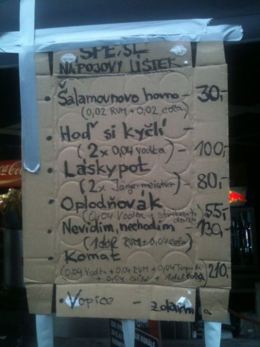 SPE.SL
NÁPOJOVÝ LÍSTEK
• Šalamounovo hovno - 30,-
(0,02 RUM + 0,02 cola)
• Hoď si kyčlí -
(2x 0,04 vodka) - 100,-
• Láskypot
(2x Jägermeister) - 80,-
• Oplodňovák
(0,04 Vodka + 55,-
• Nevidím, nechodím - 130,-
(1dcl RUM + 0,04 cola)
• Komat
(0,04 Vodka + 0,04 RUM + 0,04 210,-
+ 0,04
Vopice - zdarma